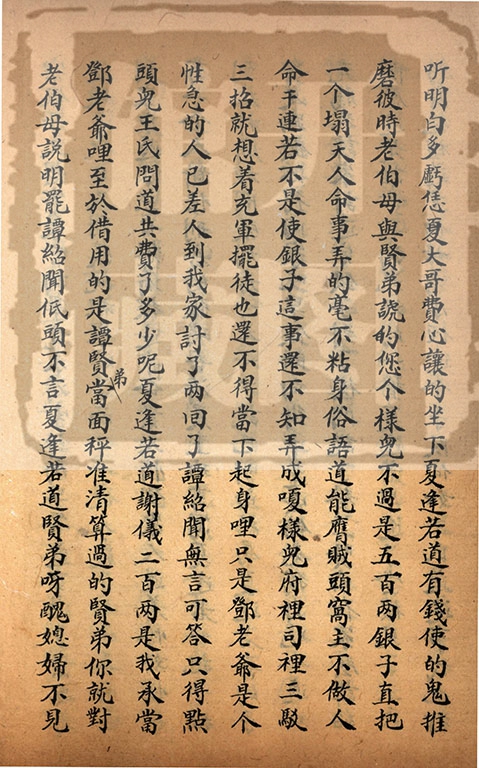 听明白多虧恁夏大哥費心讓的坐下夏逢若道有錢使的鬼推
磨彼時老伯母與賢弟諕的您个樣兒不過是五百两銀子直把
一个塌天人命事弄的毫不粘身俗語道能膺賊頭窩主不做人
命干連若不是使銀子這事還不知弄成嗄樣兒府裡司裡三駁
三招就想着充軍擺徒也還不得當下起身哩只是鄧老爺是个
性急的人已差人到我家討了两回了譚紹聞無言可答只得點
頭兒王氏問道共費了多少呢夏逢若道謝儀二百两是我承當
鄧老爺哩至於借用的是譚賢弟當面秤准清算過的賢弟你就對
老伯母説明罷譚紹聞低頭不言夏逢若道賢弟呀醜媳婦不見